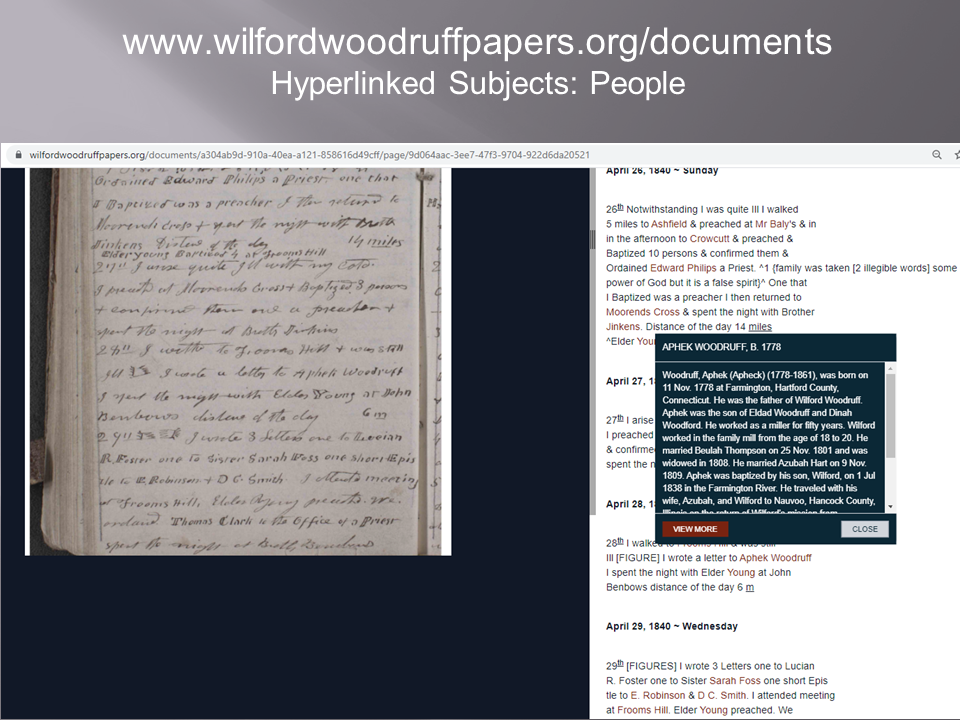 www.wilfordwoodruffpapers.org/documents
Hyperlinked Subjects: People
wilfordwoodruffpapers.org/documents/a304ab9d-910a-40ea-a121-858616d49cff/page/9d064aac-3ee7-47f3-9704-922d6da20521
Ordained Edward Philips a Priest one that
I Baptized was a preacher I then returned to
Moorends Cross & spent the night with Broth
Jinkens Distance of the day 14 miles
Elder Young Baptized 4 at Frooms Hill
27th I arose quite Ill with my Cold.
I preach at Moorends Cross & Baptized 3 persons
& confirmed them one a preacher &
spent the night at Broth Jinkins
28th I walked to Frooms Hill & was still
Ill I wrote a letter to Aphek Woodruff
I spent the night with Elder Young at John
Benbows distance of the day 6 m
29th I wrote 3 Letters one to Lucian
R. Foster one to Sister Sarah Foss one short Epis
tle to E. Robinson & D C. Smith. I attended meeting
at Frooms Hill, Elder Young preached. We
ordaind Thomas Clark to the Office of a Priest
spent the night at Broth Benbows
April 26, 1840 ~ Sunday
26th Notwithstanding I was quite Ill I walked
5 miles to Ashfield & preached at Mr Baly's & in
in the afternoon to Crowcutt & preached &
Baptized 10 persons & confirmed them &
Ordained Edward Philips a Priest. ^1 {family was taken [2 illegible words] some
power of God but it is a false spirit}^ One that
I Baptized was a preacher I then returned to
Moorends Cross & spent the night with Brother
Jinkens. Distance of the day 14 miles
^Elder You
April 27, 1
27th I arise
I preached
& confirme
spent the n
April 28, 1
28th I walked to Frooms Hill & was still
Ill [FIGURE] I wrote a letter to Aphek Woodruff
I spent the night with Elder Young at John
Benbows distance of the day 6 m
April 29, 1840 ~ Wednesday
29th [FIGURES] I wrote 3 Letters one to Lucian
R. Foster one to Sister Sarah Foss one short Epis
tle to E. Robinson & D C. Smith. I attended meeting
at Frooms Hill. Elder Young preached. We
APHEK WOODRUFF, B. 1778
Woodruff, Aphek (Apheck) (1778-1861), was born on
11 Nov. 1778 at Farmington, Hartford County,
Connecticut. He was the father of Wilford Woodruff.
Aphek was the son of Eldad Woodruff and Dinah
Woodford. He worked as a miller for fifty years. Wilford
worked in the family mill from the age of 18 to 20. He
married Beulah Thompson on 25 Nov. 1801 and was
widowed in 1808. He married Azubah Hart on 9 Nov.
1809. Aphek was baptized by his son, Wilford, on 1 Jul
1838 in the Farmington River. He traveled with his
wife, Azubah, and Wilford to Nauvoo, Hancock County,
Illinois on the return of Wilford's mission from
VIEW MORE
CLOSE